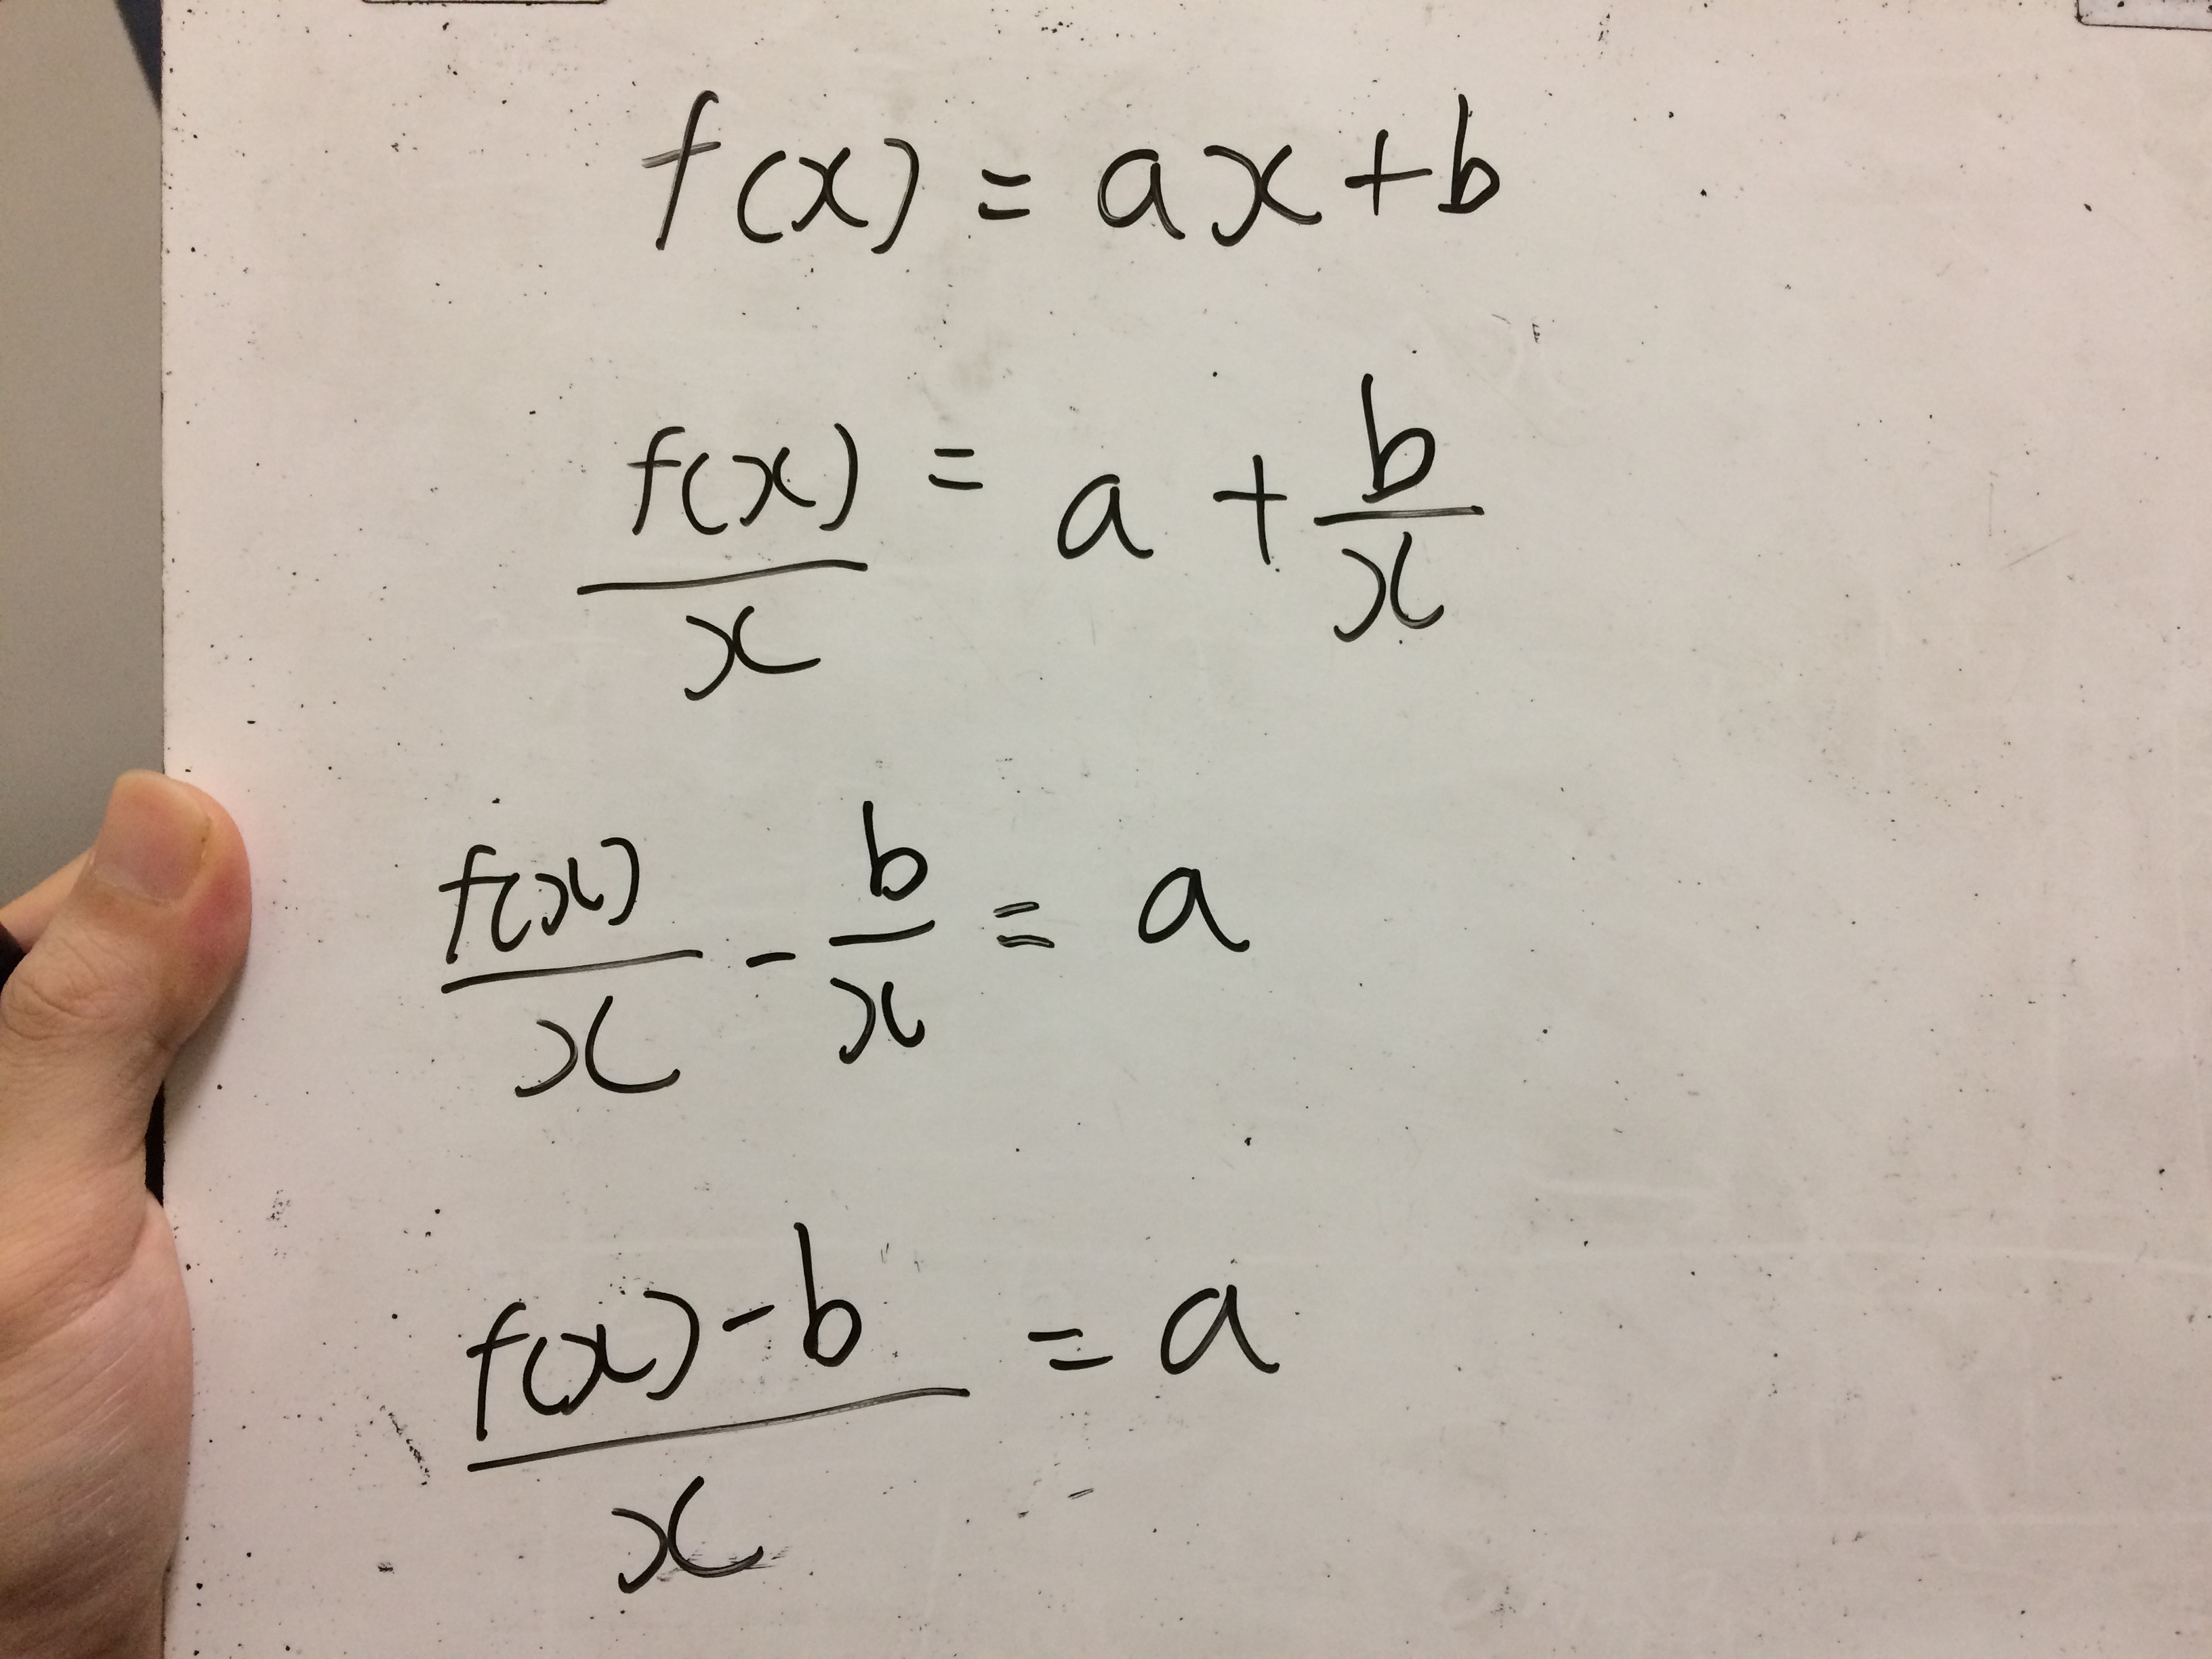 f(x) = ax + b
f(x)/x = a + b/x
f(x)/x - b/x = a
(f(x) - b)/x = a